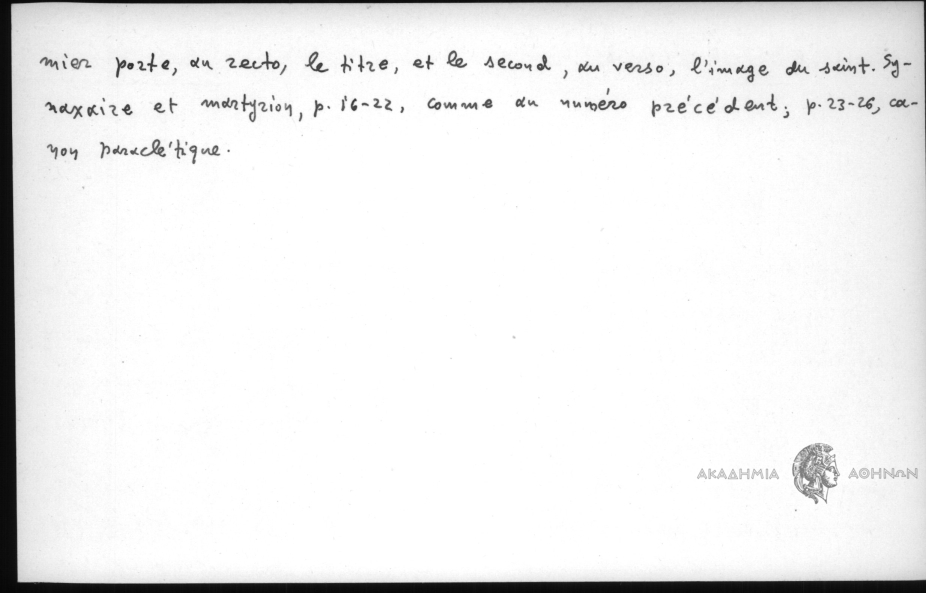 mier porte, au recto, le titre, et le second, au verso, l'image du saint. Sy-
naxaire et martyrion, p. 16-22, comme au numéro précédent; p. 23-26, ca-
non paraclétique.
ΑΚΑΔΗΜΙΑ ΑΘΗΝΩΝ